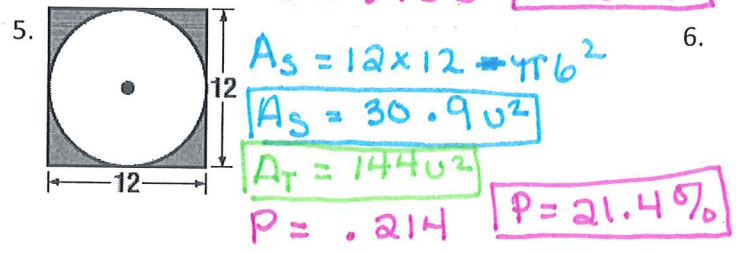 5.
12
12
A_S = 12 x 12 - π6²
A_S = 30.9 u²
A_T = 144 u²
P = .214
P = 21.4%
6.